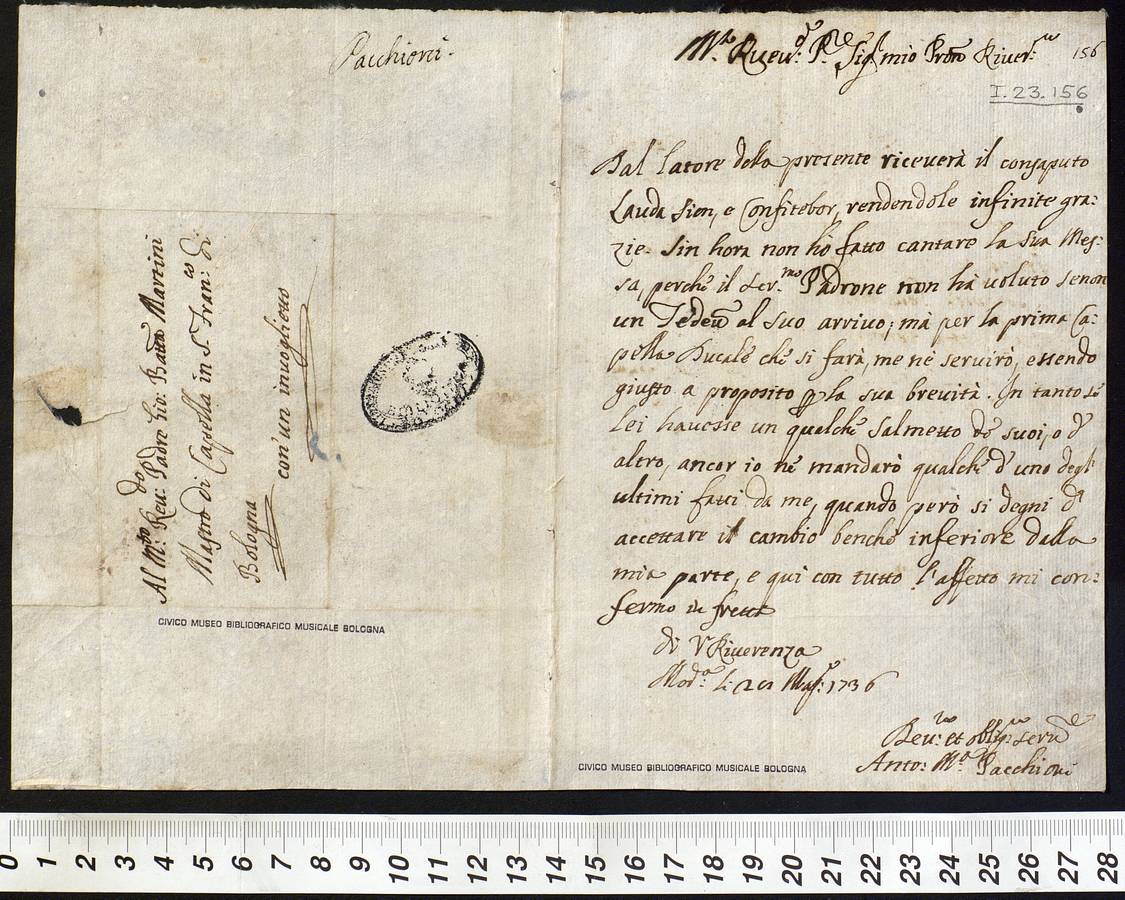 Pacchioni.
Al M.to Reu: do Padre Gio: Batta Martini
Mastro di Capella in S. Fran:co di
Bologna
con un inuoglietto
CIVICO MUSEO BIBLIOGRAFICO MUSICALE BOLOGNA
M.to Reu: P.re Sig.r mio Pron Riuer.mo
156
I.23.156
Dal latore della presente riceuerà il consaputo
Lauda Sion, e Confitebor, rendendole infinite gra:
zie. Sin hora non hò fatto cantare la sua Mes:
sa, perche il Ser.mo Padrone non hà uoluto senon
un Tedeũ al suo arriuo; mà per la prima Ca:
pella Ducale che si farà, me nè seruirò, essendo
giusto a proposito p la sua breuità. In tanto se
lei hauesse un qualche salmetto de suoi, o d'
altro, ancor io nè mandarò qualche d'uno degl'
ultimi fatti da me, quando però si degni di
accettare il cambio benche inferiore dalla
mia parte, e qui con tutto l'affetto mi con:
fermo in fretta
di V Riuerenza
Mod.a li Mag: 1736
Deu:mo et obblig:mo seru.re
Anto: M.a Pacchioni
CIVICO MUSEO BIBLIOGRAFICO MUSICALE BOLOGNA
0 1 2 3 4 5 6 7 8 9 10 11 12 13 14 15 16 17 18 19 20 21 22 23 24 25 26 27 28